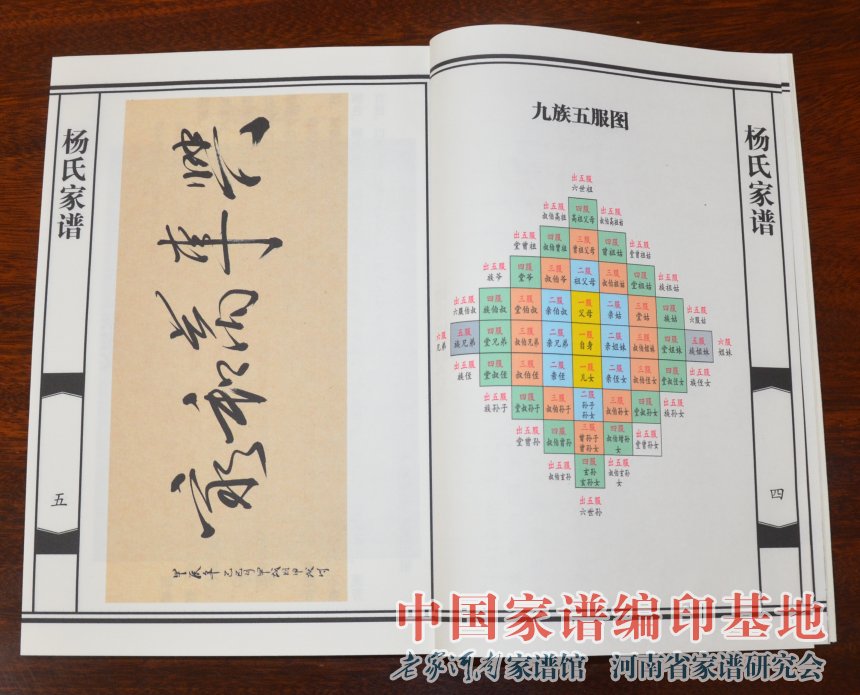 杨氏家谱
五
九族五服图
出五服
六世祖
出五服 四服 出五服
叔伯高祖 高祖父母 叔伯高祖姑
出五服 四服 三服 四服 出五服
堂曾祖 叔伯曾祖 曾祖父母 曾祖姑 堂曾祖姑
出五服 四服 三服 二服 三服 四服 出五服
族爷 堂爷 叔伯爷 祖父母 叔伯祖姑 堂祖姑 族祖姑
出五服 四服 三服 二服 一服 二服 三服 四服 出五服
六服伯叔 族伯叔 堂伯叔 亲伯叔 父母 亲姑 堂姑 族姑 六服姑
六服 五服 四服 三服 二服 一服 二服 三服 四服 五服 六服
兄弟 族兄弟 堂兄弟 叔伯兄弟 亲兄弟 自身 亲姐妹 叔伯姐妹 堂姐妹 族姐妹 姐妹
出五服 四服 三服 二服 一服 二服 三服 四服 出五服
族侄 堂叔侄 叔伯侄 亲侄 儿女 亲侄女 叔伯侄女 堂叔侄女 族侄女
出五服 四服 三服 二服 三服 四服 出五服
族孙子 堂叔孙子 叔伯孙子 孙子 叔伯孙女 堂叔孙女 族孙女
孙女
出五服 四服 三服 四服 出五服
堂曾孙 叔伯曾孙 曾孙子 叔伯增孙女 堂曾孙女
曾孙女
出五服 四服 出五服
叔伯玄孙 玄孙 叔伯玄孙女
玄孙女
出五服
六世孙
杨氏家谱
四
中国家谱编印基地
老家河南家谱馆 河南省家谱研究会